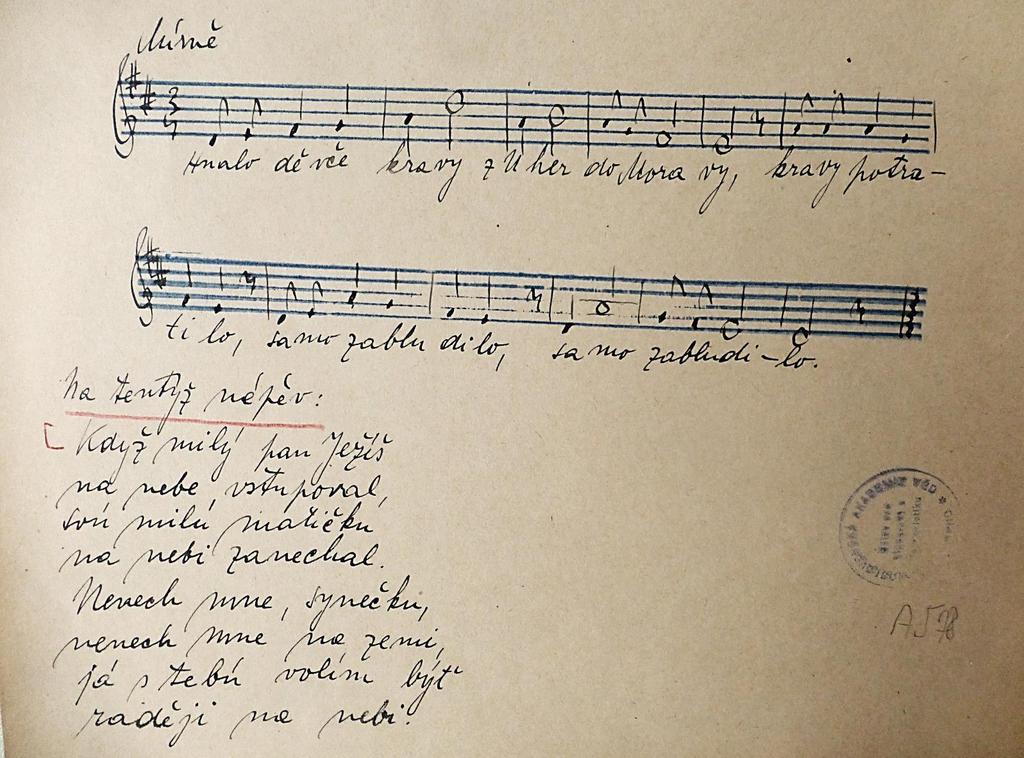 Mírně
3
4
Hnalo děvče kravy z Uher do Moravy, kravy potra-
tilo, samo zabludilo, samo zabludi-lo.
Na tentýž nápěv:
Když milý pan Ježíš
na nebe vstupoval,
svú milú matičku
na nebi zanechal.
Nenech mne, synečku,
nenech mne na zemi,
já s tebú volím být
raději na nebi.
AKADEMIE VĚD
A 578